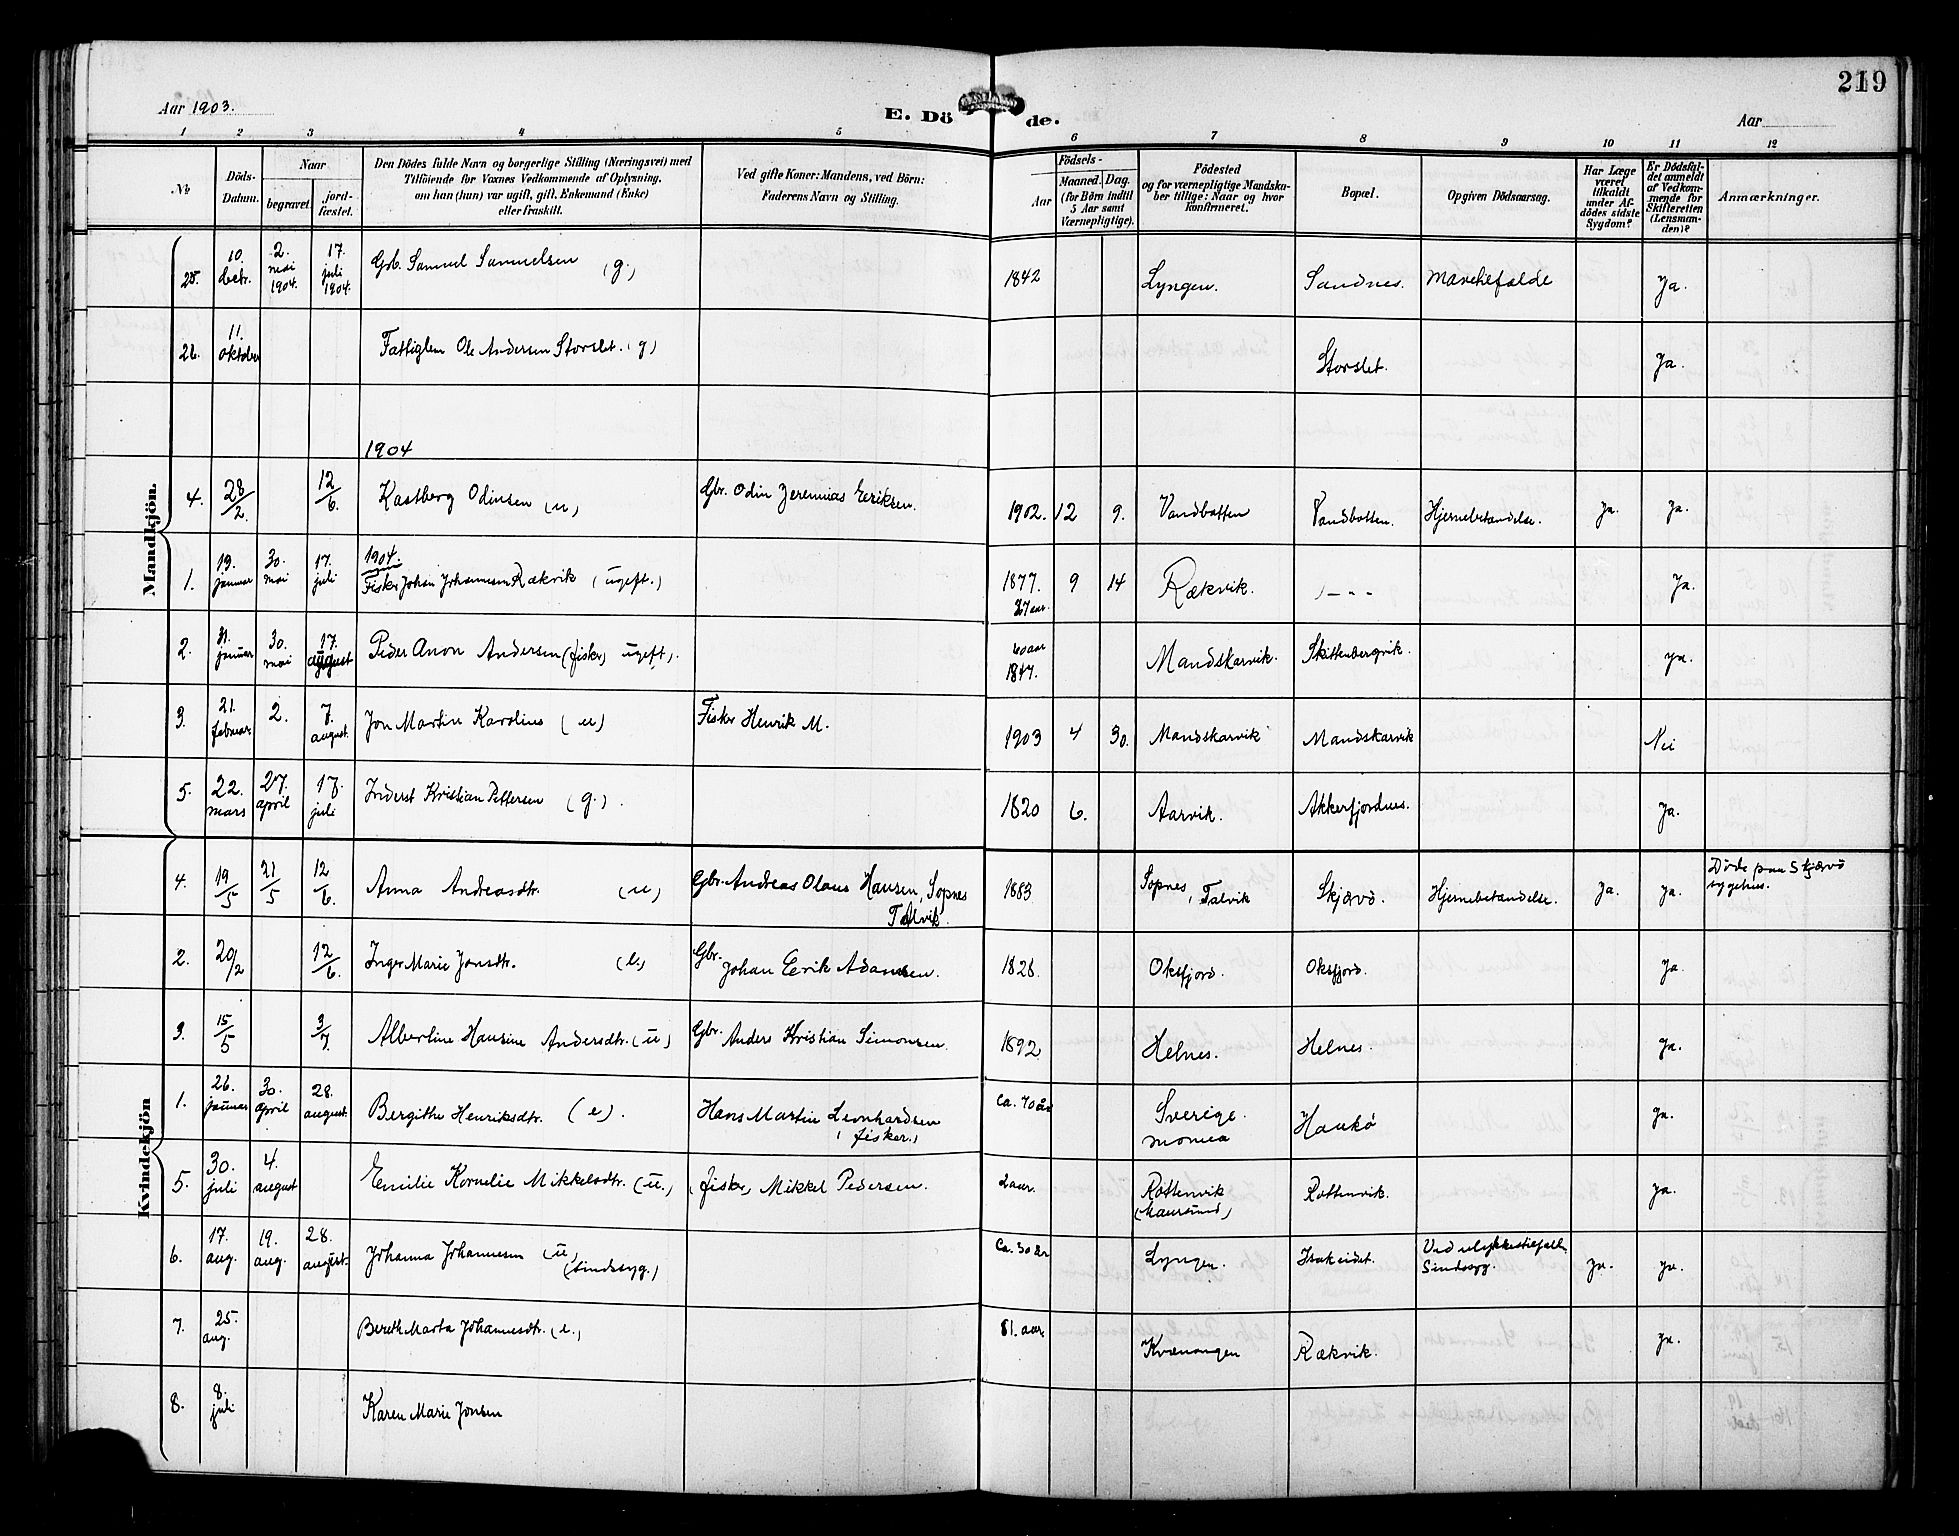 219
Aar 1903.
E. Dö de.
Aar
1 2 3 4 5 6 7 8 9 10 11 12
No
Döds-
Datum.
Naar
begravet.
jord-
fæstet.
Den Dödes fulde Navn og borgerlige Stilling (Næringsvei) med
Tilföiende for Voxnes Vedkommende af Oplysning,
om han (hun) var ugift, gift, Enkemand (Enke)
eller fraskilt.
Ved gifte Koner: Mandens, ved Börn:
Faderens Navn og Stilling.
Födsels-
Aar
Maaned. Dag.
(for Börn indtil
5 Aar samt
Værnepligtige).
Födested
og for værnepligtige Mandska-
ber tillige: Naar og hvor
konfirmeret.
Bopæl.
Opgiven Dödsaarsag.
Har Læge
været
tilkaldt
under Af-
dödes sidste
Sygdom?
Er Dödsfal-
det anmeldt
af Vedkom-
mende for
Skifteretten
(Lensman-
den)?
Anmærkninger.
Mandkjön.
25. 10. decbr. 2. mai 1904. 17. juli 1904. Gbr. Samuel Samuelsen (g.) 1842 Lyngen. Sandnes. Ja.
26. 11. oktober Fattiglem Ole Andersen Storslet. (g) Storslet. Ja.
1904
4. 28/2. 12/6. Kastberg Odinsen (u) Gbr. Odin Jeremias Eeriksen. 1902. 12 9. Vandbotten Vandbotten. Hjernebetændelse. Ja. Ja.
1. 19. januar 30. mai 17. juli 1904. Fisker Johan Johannesen Rækvik (ugift.) 1877. 27 aar. 9 14 Rækvik. - - - Ja.
2. 31. januar 30. mai 17. august Peder Anon Andersen (fisker) ugift). 60 aar 1847. Mandskarvik. Skittenbergvik. Ja.
3. 21. februar. 2. 7. august. Jon Martin Karolius (u) Fisker Henrik M. 1903 4 30. Mandskarvik Mandskarvik Nei
5. 22. mars 27. april 17. juli Inderst Kristian Pettersen (g.). 1820 6. Aarvik. Akkerfjordnes. Ja.
Kvindekjön
4. 19/5 21/5 12/6. Anna Andreasdtr. (u) Gbr. Andreas Olaus Hansen, Sopnes Talvik. 1883. Sopnes, Talvik Skjærvö. Hjernebetændelse. Ja. Ja. Döde paa Skjærvö sygehus.
2. 20/2 12/6. Inger Marie Jonsdtr. (e.) Gbr. Johan Eerik Adamsen. 1826. Oksfjord. Oksfjord. Ja.
3. 15/5 3/7. Albertine Hansine Andersdtr. (u) Gbr. Anders Kristian Simonsen. 1892 Helnes. Helnes. Ja.
1. 26. januar 30. april 28. august. Bergithe Henriksdtr. (e). Hans Martin Leonhardsen (fisker.) Ca. 70 år Sverige Haukö Ja.
5. 30. juli 4. august Emilie Kornelie Mikkelsdtr. (u.) (fisker) Mikkel Pedersen. 2 aar. Rottenvik (Maursund) Rottenvik. Ja.
6. 17. aug. 19. aug. 28. august. Johanna Johannesen (u) (sindssyg.) Ca. 30 år Lyngen. Isakeidet. Ved ulykkestilfælle. Sindssyg. Ja. Ja.
7. 25. aug. Bereth Marta Johannesdtr. (e.) 81. aar. Kvænangen Rækvik. Ja.
8. 8. juli Karen Marie Jonsen